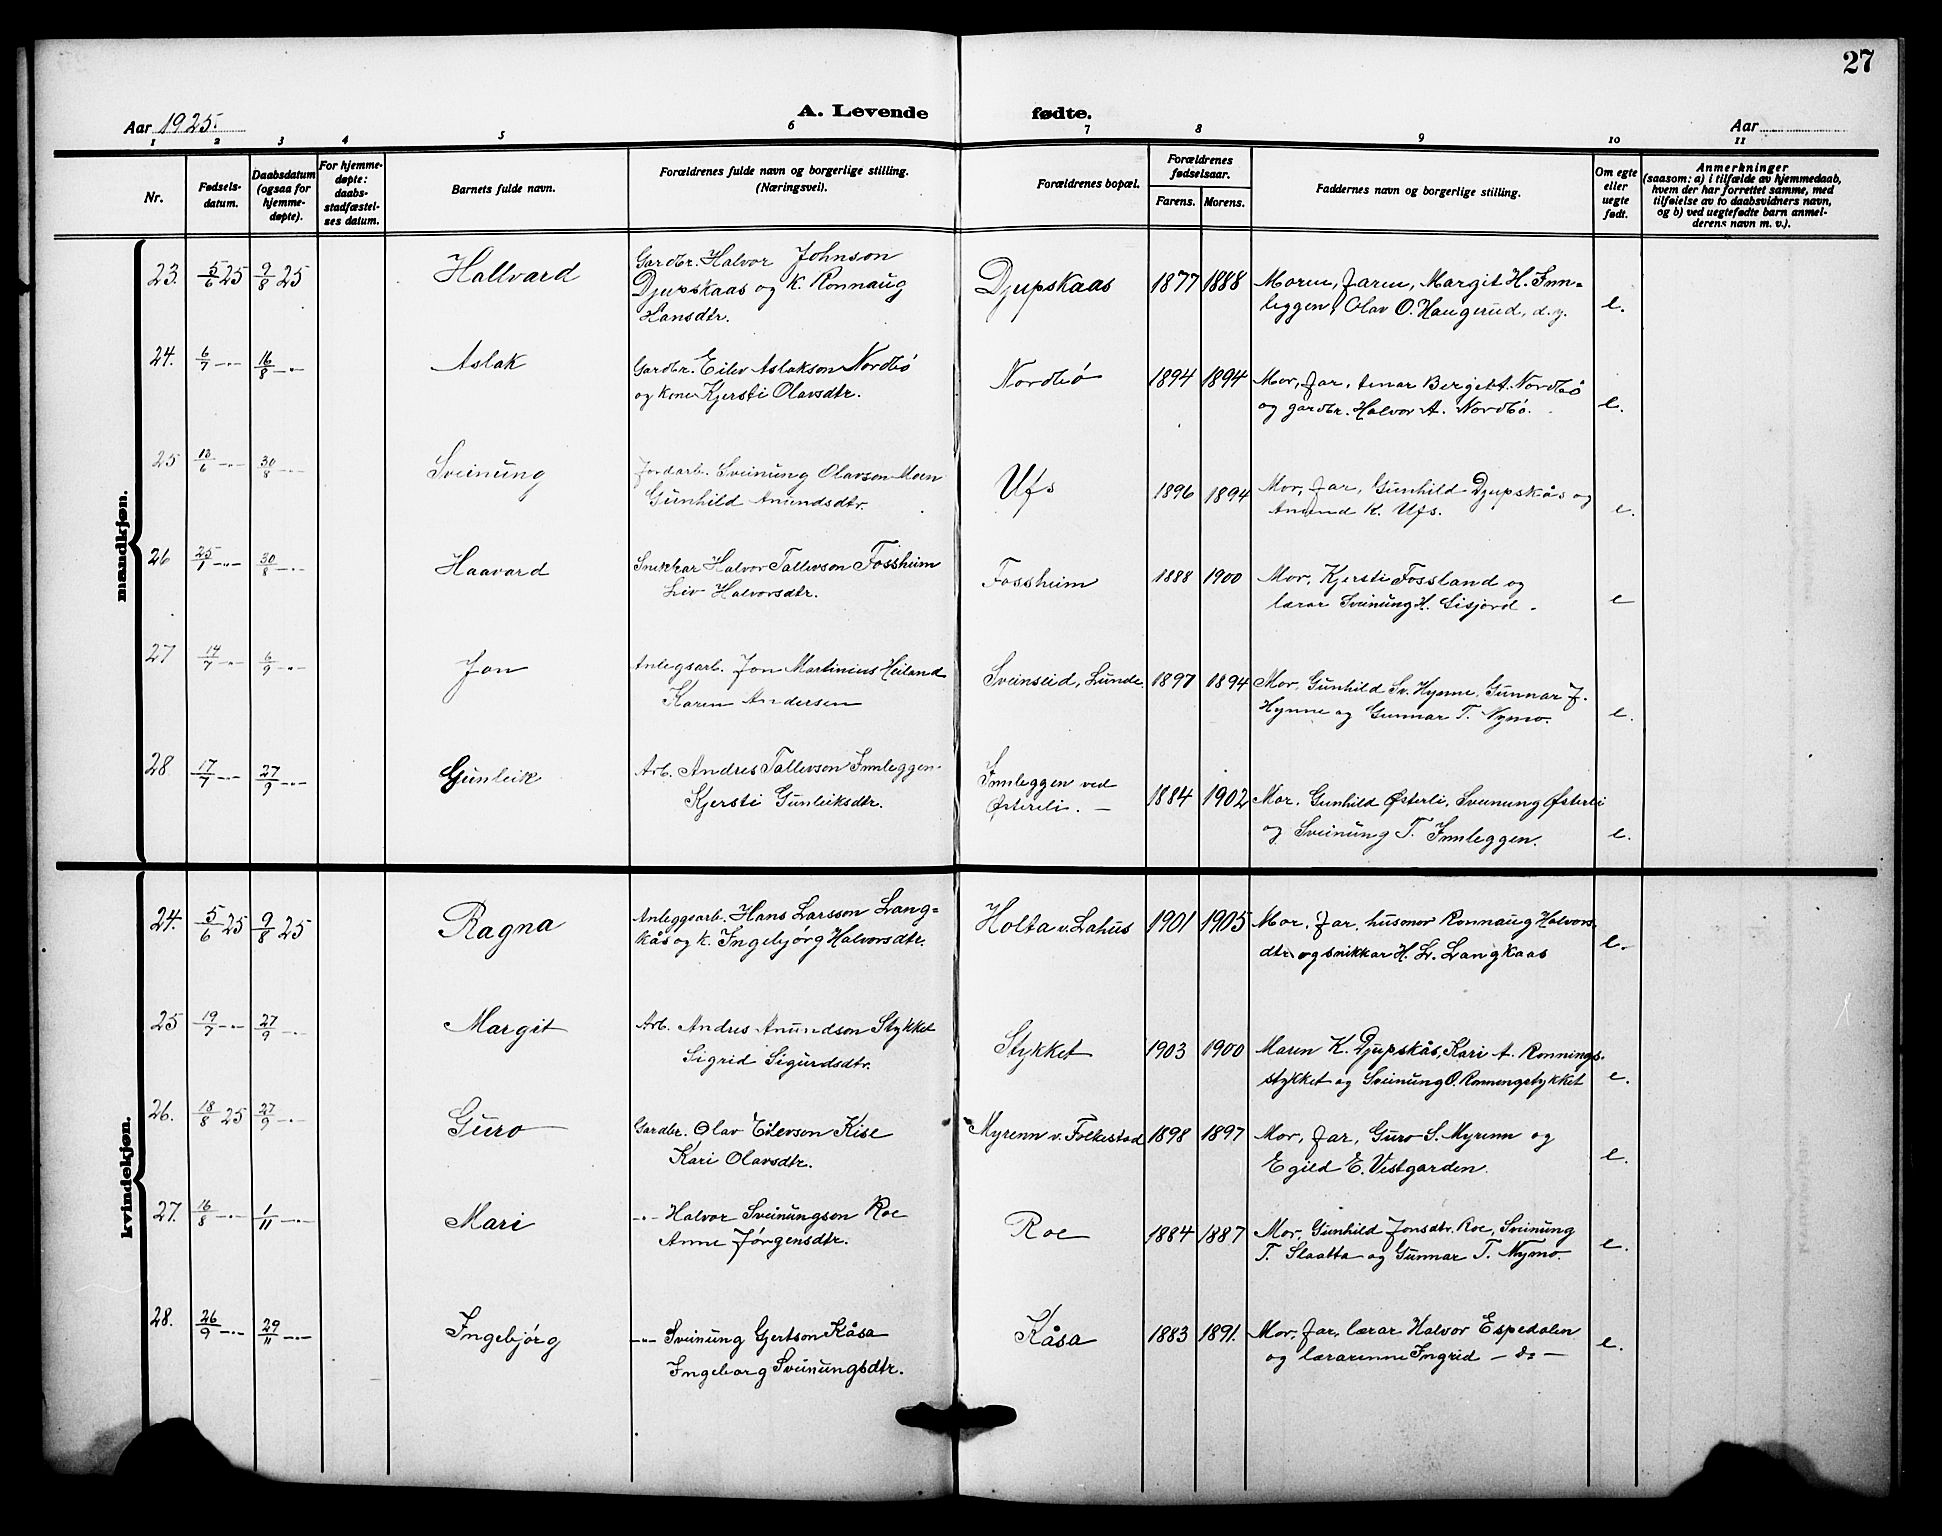 27
A. Levende fødte.
Aar 1925.
Aar
1 2 3 4 5 6 7 8 9 10 11
Nr.
Fødsels-
datum.
Daabsdatum
(ogsaa for
hjemme-
døpte).
For hjemme-
døpte:
daabs-
stadfæstel-
ses datum.
Barnets fulde navn.
Forældrenes fulde navn og borgerlige stilling.
(Næringsvei).
Forældrenes bopæl.
Forældrenes
fødselsaar.
Farens. Morens.
Faddernes navn og borgerlige stilling.
Om egte
eller
uegte
født.
Anmerkninger
(saasom: a) i tilfælde av hjemmedaab,
hvem der har forrettet samme, med
tilføielse av to daabsvidners navn,
og b) ved uegtefødte barn anmel-
derens navn m. v.).
mandkjøn.
23. 5/6 25 9/8 25 Hallvard
Gardbr. Halvor Johnson
Djupskaas og k. Ronnaug
Hansdtr.
Djupskaas 1877 1888
Moren, faren, Margit H. Inn=
leggen, Olav O. Haugerud, d.y.
e.
24. 6/7 -"- 16/8 -"- Aslak
Gardbr. Eilev Aslakson Nordbø
og kone Kjersti Olavsdtr.
Nordbø 1894 1894
Mor, far, Berget A. Nordbø
og gardbr. Halvor A. Nordbø.
e.
25 13/6 -"- 30/8 -"- Sveinung
Jordarb. Sveinung Olavson Moen
Gunhild Anundsdtr.
Ufs 1896 1894
Mor, far, Gunhild Djupskås og
Anund K. Ufs.
e.
26 25/1 -"- 30/8 -"- Haavard
Snikkar Halvor Tallevson Fossheim
Liv Halvorsdtr.
Fossheim 1888 1900
Mor, Kjersti Fossland og
lærar Sveinung H. Sisjord.
e
27 14/7 -"- 6/9 -"- Jon
Anlegsarb. Jon Martinius Heiland
Karen Andersen
Sveinseid, Lunde. 1897 1894
Mor, Gunhild Sv. Hynne, Gunnar J.
Hynne og Gunnar T. Nymo.
e.
28 17/7 -"- 27/9 -"- Gunleik
Arb. Andres Tallevson Innleggen.
Kjersti Gunleiksdtr.
Innleggen ved
Østerli. — 1884 1902
Mor, Gunhild Østerli, Sveinung Østerli
og Sveinung T. Innleggen.
e.
kvindekjøn.
24. 5/6 25 9/8 25 Ragna
Anleggsarb. Hans Larsson Lang=
kås og k. Ingebjørg Halvorsdtr.
Holta v. Lahus 1901 1905
Mor, far, husmor Ronnaug Halvors-
dtr. og snikkar H. L. Langkaas
e.
25 19/7 -"- 27/9 -"- Margit
Arb. Andres Anundson Stykket
Sigrid Sigurdsdtr.
Stykket 1903 1900
Maren K. Djupskås, Kari A. Ronnings-
stykket og Sveinung O. Ronningstykket
e.
26. 18/8 25 27/9 -"- Guro
Gardbr. Olav Eilevson Kise
Kari Olavsdtr.
Myrenn v. Folkestad 1898 1897
Mor, far, Guro S. Myrenn og
Egild E. Vestgarden.
e.
27. 16/8 -"- 1/11 -"- Mari
-"- Halvor Sveinungson Roe
Anne Jørgensdtr.
Roe 1884 1887
Mor, Gunhild Jonsdtr. Roe, Sveinung
T. Slaatta og Gunnar T. Nymo.
e.
28. 26/9 -"- 29/11 -"- Ingebjørg
-"- Sveinung Gjertson Kåsa
Ingeborg Sveinungsdtr.
Kåsa 1883 1891.
Mor, far, lærar Halvor Espedalen
og lærarinne Ingrid — do —
e.